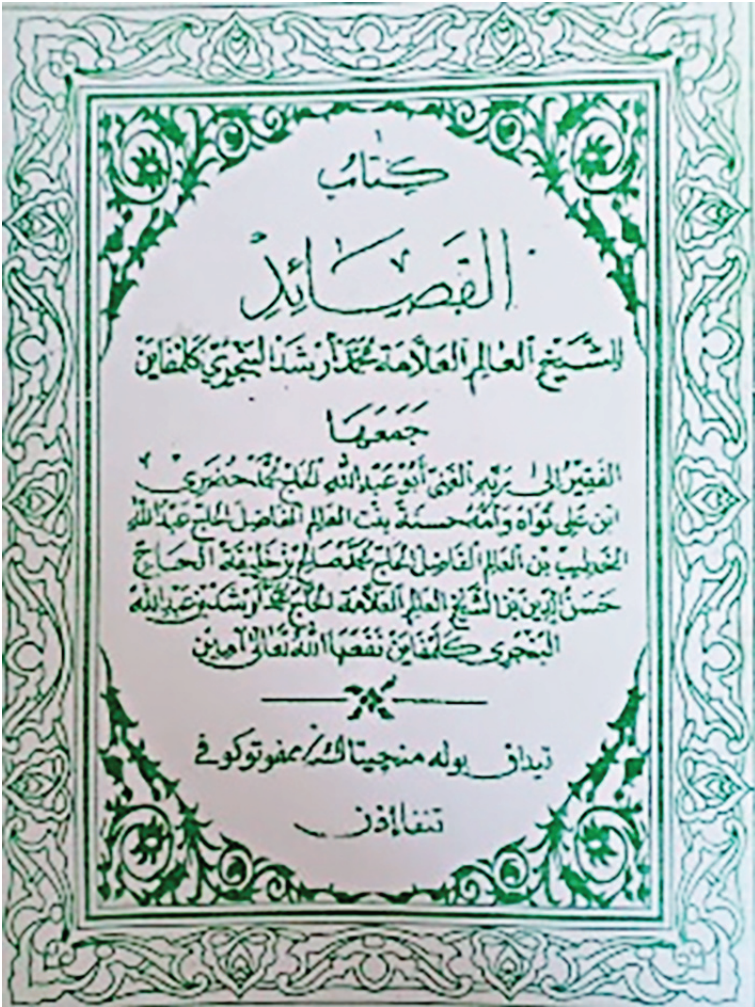 كِتَابُ
القَصَائِدِ
للشَّيخِ العَالِمِ العَلَّامَة مُحَمَّد أرشَد البَنْجَرِي كلمفاين
جَمَعَهَا
الفَقِيرُ إِلى رَبِّهِ الغَنِي أَبُو عَبْدِ اللهِ الحَاج مُحَمَّد
ابن عَلِى نواه وَأُمُّهُ حسنة بِنْت العَالِم الفَاضِل الحَاج عَبْدِ اللهِ
الخَطِيب بن العَالِم الفَاضِل الحَاج مُحَمَّد صَالِح بن خَلِيفَة الحَاج
حَسَنُ الدِّين بن الشَّيْخ العَالِم العَلَّامَة الحَاج مُحَمَّد أرشَد بن عَبْدِ الله
البَنْجَرِي كَلمفاين نَفَعَهَا اللهُ تَعَالَى آمِين
تيداق بوله منچيتاق / مموتوكوفي
تنفا إذن